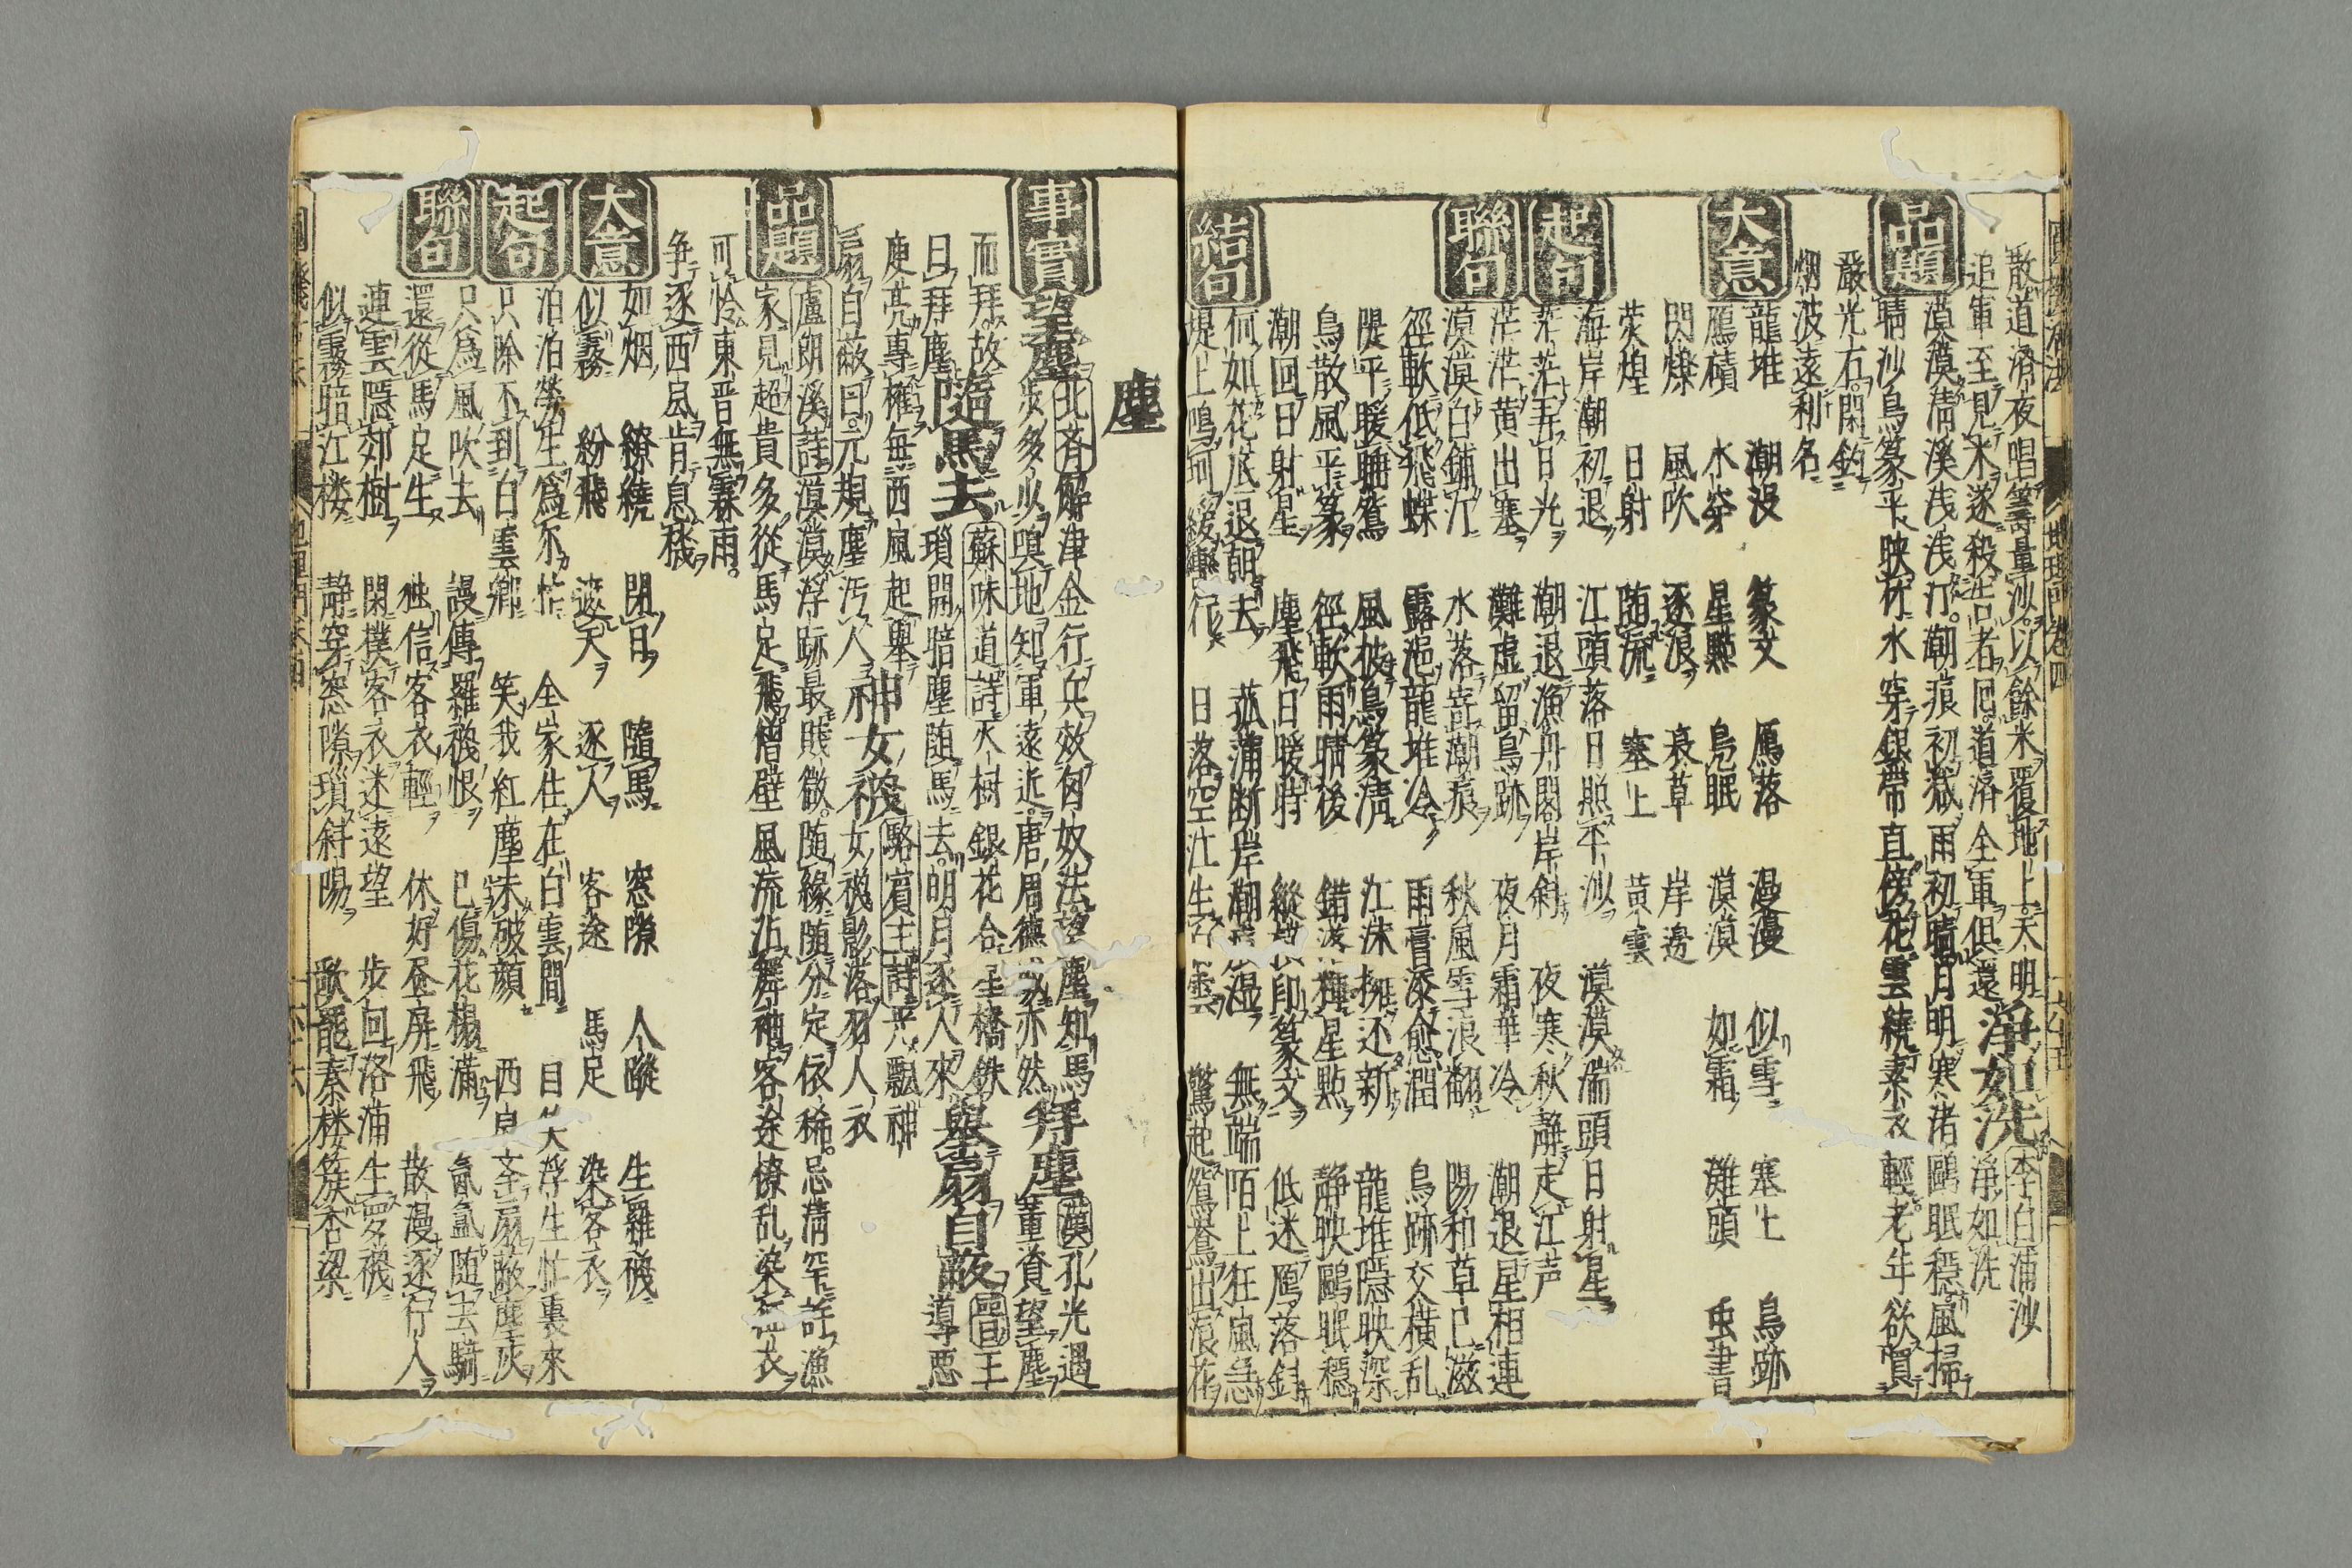 散道済夜唱籌量沙以餘米覆地上天明淨如洗李白浦沙
追軍至見米遂殺告者囘道済全軍俱還淨如洗
品題 漠漠清溪浅浅汀潮痕初減雨初晴月明寒渚鷗眠穏風掃
晴沙鳥篆平映竹水穿銀帶直傍花雲繞素衣輕老年欲買
嚴光右閑釣
烟波遠利名
大意 龍堆 潮没 篆文 鴈落 漫漫 似雪 塞上 鳥跡
鴈磧 水穿 星點 鳧眠 漠漠 如霜 灘頭 虫書
閃爍 風吹 逐浪 衰草 岸邊
荧煌 日射 随流 塞上 黄雲
起句 海岸潮初退 江頭落日照平沙 漠漠湍頭日射星
茫茫弄日光 潮退漁舟閣岸斜 夜寒秋静走江声
茫茫黄出塞 灘虚留鳥跡 夜月霜華冷 潮退星相連
聯句 漠漠白鋪江 水落嵜潮痕 秋風雪浪翻 陽和草已滋
徑軟低飛蝶 露浥龍堆冷 雨膏添愈潤 鳥跡交横乱
隄平暖睡鴛 風披鳥篆清 江沫擁还新 龍堆隠映深
鳥散風平篆 徑軟雨晴後 錯落輝星點 静映鷗眠穏
潮回日射星 塵飛日暖時 縱横印篆文 低迷鴈落斜
結句 何如花底退朝去 菰蒲断岸潮 湿 無端陌上狂風急
堤上鳴珂緩轡行 日落空江生 雲 驚起鴛鴦出浪花
塵
事實 望塵北斉解津金行兵效匈奴法望塵知馬
歩多少嗅地知軍遠近唐周德威亦然拜塵漢孔光過
董賢望塵
而拜故蘇味道詩火樹銀花合星橋鉄
日拜塵隨馬去瑣開暗塵随馬去明月逐人來舉扇自蔽晉王導悪
庾亮專權毎西風起舉
扇自蔽曰元規塵汚人神女襪駱賓王詩 飄神
女襪影落羽人衣
品題 盧朗溪詩漠漠浮跡最賎微随縁随分定依稀忌清罕許漁
家見超貴多從馬足飛僧壁風流沾舞袖客途撩乱染征衣
可怜東晋無霖雨
争逐西風肯息機
大意 如烟 繚繞 閉日 隨馬 窓隙 人蹤 生羅襪
似霧 紛飛 遮天 逐人 客途 馬足 染客衣
起句 泊泊勞生為尓忙 全家住在白雲間 自笑浮生忙裏來
只除不到白雲郷 笑我紅塵未破顔 西風 扇蔽塵灰
聯句 只為風吹去 謾傳羅襪恨 已傷花榻満 氤氳随去騎
還從馬足生 独信客衣輕 休好昼屏飛 散漫逐行人
連雲隠郊樹 閑撲客衣迷遠望 步回洛浦生羅襪
似霧暗江楼 静穿窓隙瑣斜陽 歌罷秦楼簇杏梁